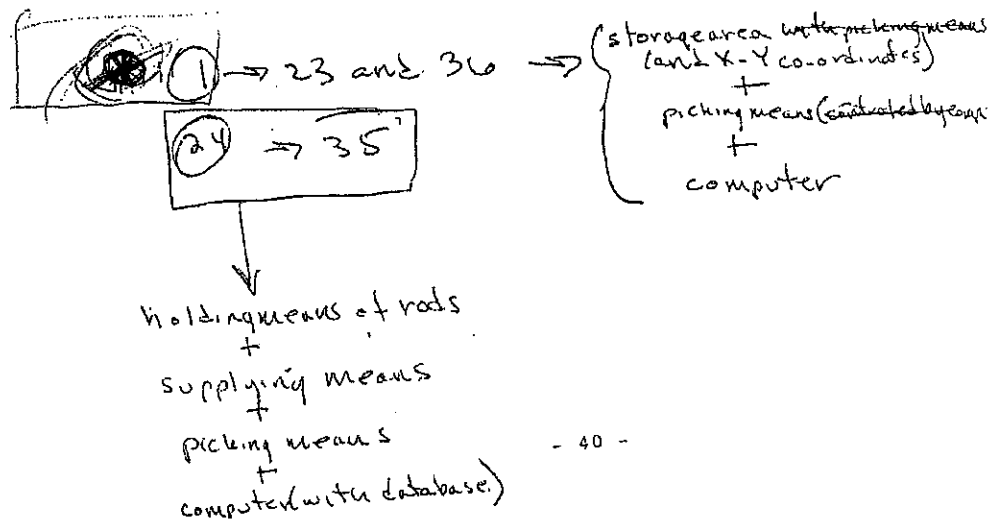 1 → 23 and 36 → storage area with picking means
(and X-Y co-ordinates)
+
picking means (controlled by comp
+
computer
24 → 35
holding means of rods
+
supplying means
+
picking means
+
computer (with database)
- 40 -